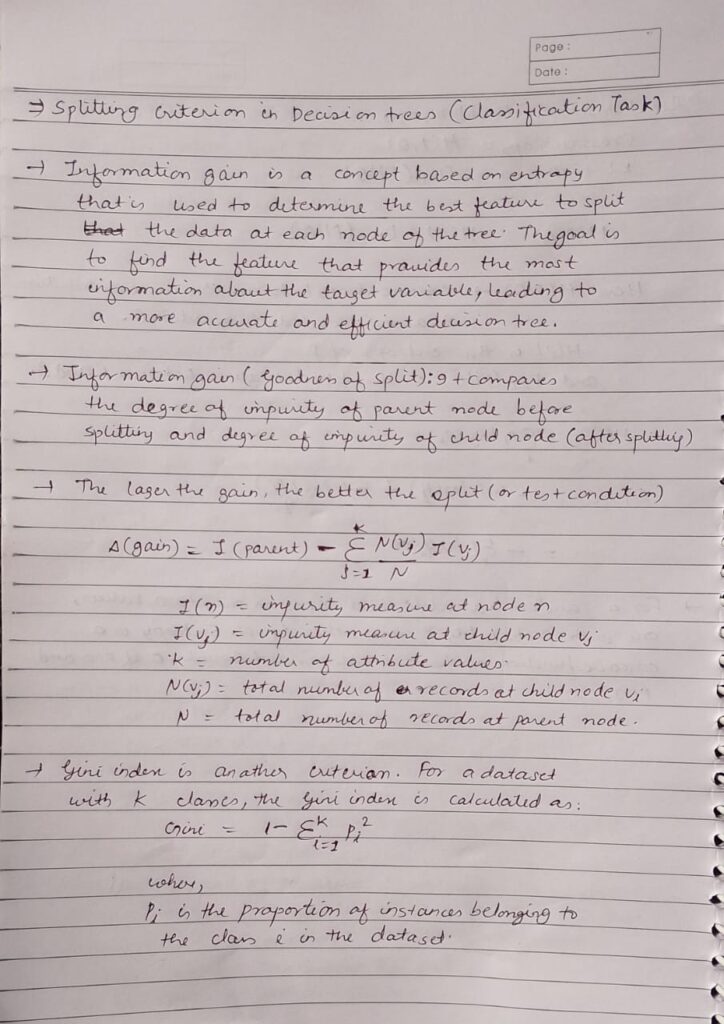 Page :
Date :
⇒ Splitting criterion in Decision trees (Classification Task)
→ Information gain is a concept based on entropy
that is used to determine the best feature to split
that the data at each node of the tree. The goal is
to find the feature that provides the most
information about the target variable, leading to
a more accurate and efficient decision tree.
→ Information gain (Goodness of split): It compares
the degree of impurity of parent node before
splitting and degree of impurity of child node (after splitting)
→ The lager the gain, the better the split (or test condition)
Δ(gain) = I (parent) - Σ_{j=1}^{k} N(vj)/N I(vj)
I(n) = impurity measure at node n
I(vj) = impurity measure at child node vj
k = number of attribute values.
N(vj) = total number of records at child node vj
N = total number of records at parent node.
→ Gini index is another criterion. For a dataset
with k classes, the Gini index is calculated as:
Gini = 1 - Σ_{i=1}^{k} Pi²
where,
Pi is the proportion of instances belonging to
the class i in the dataset.